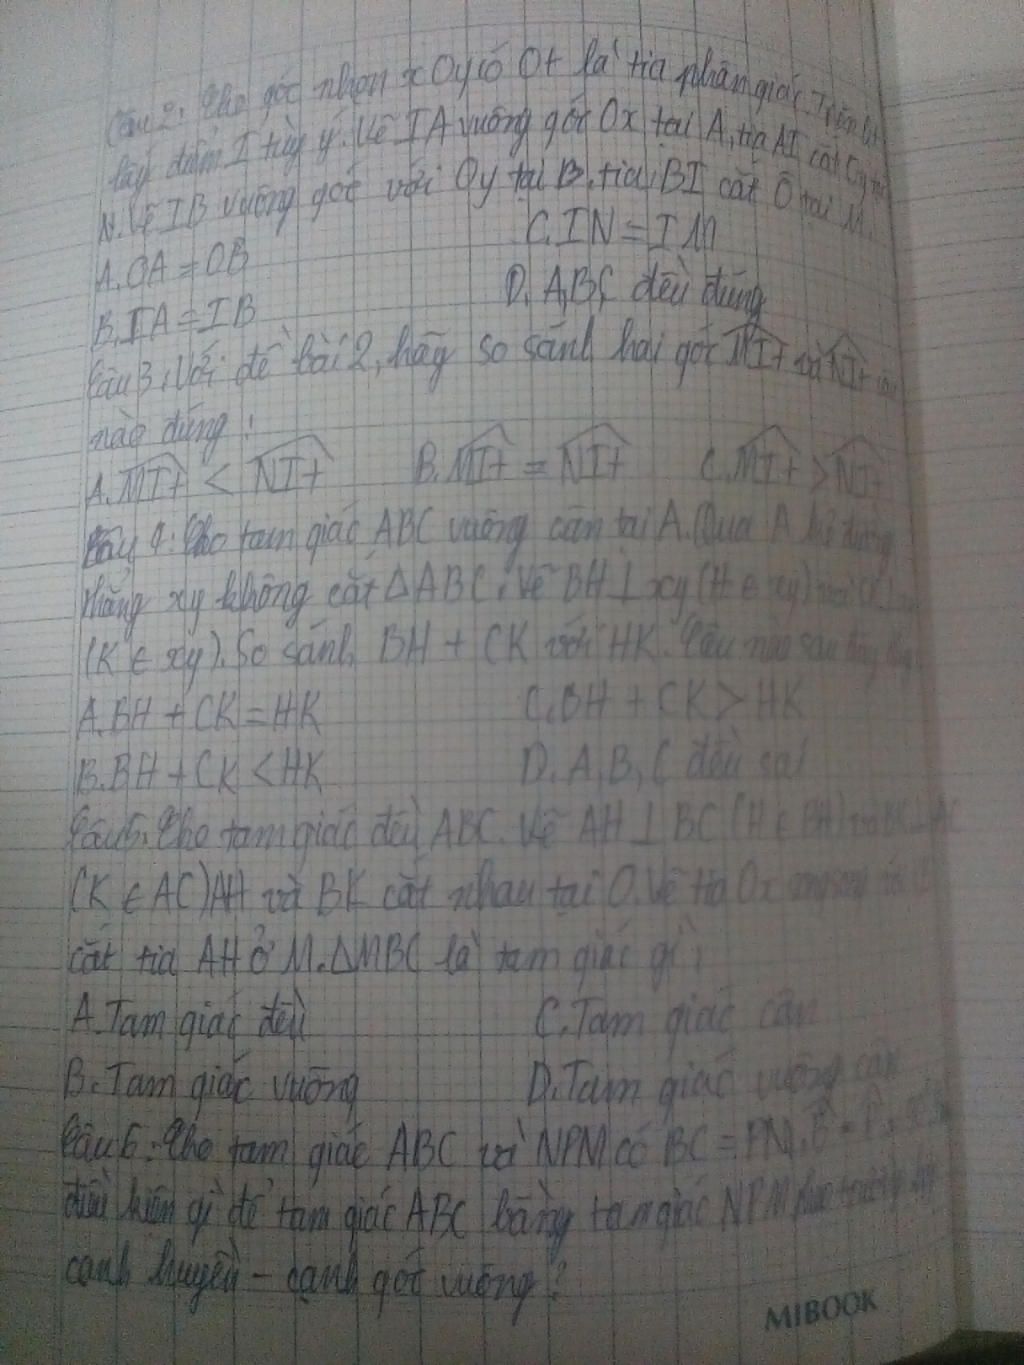 Câu 2: Cho góc nhọn xOy có Ot là tia phân giác. Trên Ot
lấy điểm I tùy ý. Vẽ IA vuông góc Ox tại A, tia AI cắt Oy tại
N. Vẽ IB vuông góc với Oy tại B, tia BI cắt Ô tại M.
A. OA = OB C. IN = IM
B. IA = IB D. A, B, C đều đúng
Câu 3: Với đề bài 2, hãy so sánh hai góc MIt và NIt câu
nào đúng:
A. MIt < NIt B. MIt = NIt C. MIt > NIt
Câu 4: Cho tam giác ABC vuông cân tại A. Qua A kẻ đường
thẳng xy không cắt ΔABC. Vẽ BH ⊥ xy (H ∈ xy) và
(K ∈ xy). So sánh BH + CK với HK. Câu nào sau đây
A. BH + CK = HK C. BH + CK > HK
B. BH + CK < HK D. A, B, C đều sai
Câu 5: Cho tam giác đều ABC. Vẽ AH ⊥ BC (H ∈ BH) và BK ⊥ AC
(K ∈ AC) AH và BK cắt nhau tại O. Vẽ tia Ox
cắt tia AH ở M. ΔMBC là tam giác gì?
A. Tam giác đều C. Tam giác cân
B. Tam giác vuông D. Tam giác vuông cân
Câu 6: Cho tam giác ABC và NPM có BC = PM,
điều kiện gì để tam giác ABC bằng tam giác NPM theo trường hợp
cạnh huyền - cạnh góc vuông?
MIBOOK